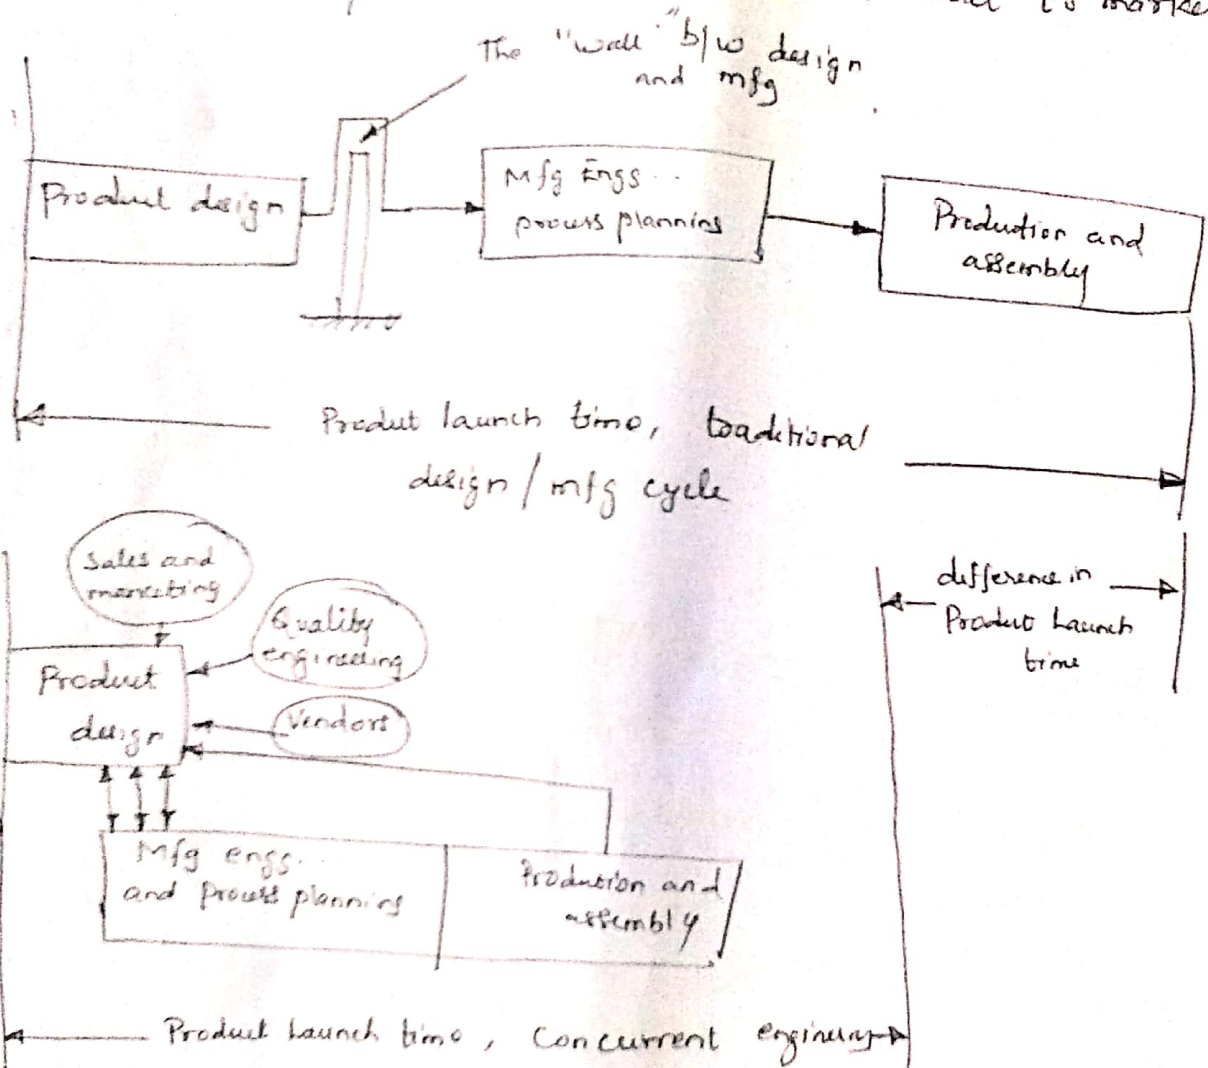 to marke
The "wall" b/w design
and mfg
Product design
Mfg Engs...
process planning
Production and
assembly
Produt launch time, traditional
design / mfg cycle
Sales and
marketing
Quality
engineering
Vendors
Product
design
difference in
Product Launch
time
Mfg engs...
and process planning
Production and
assembly
Product Launch time, Concurrent engineering